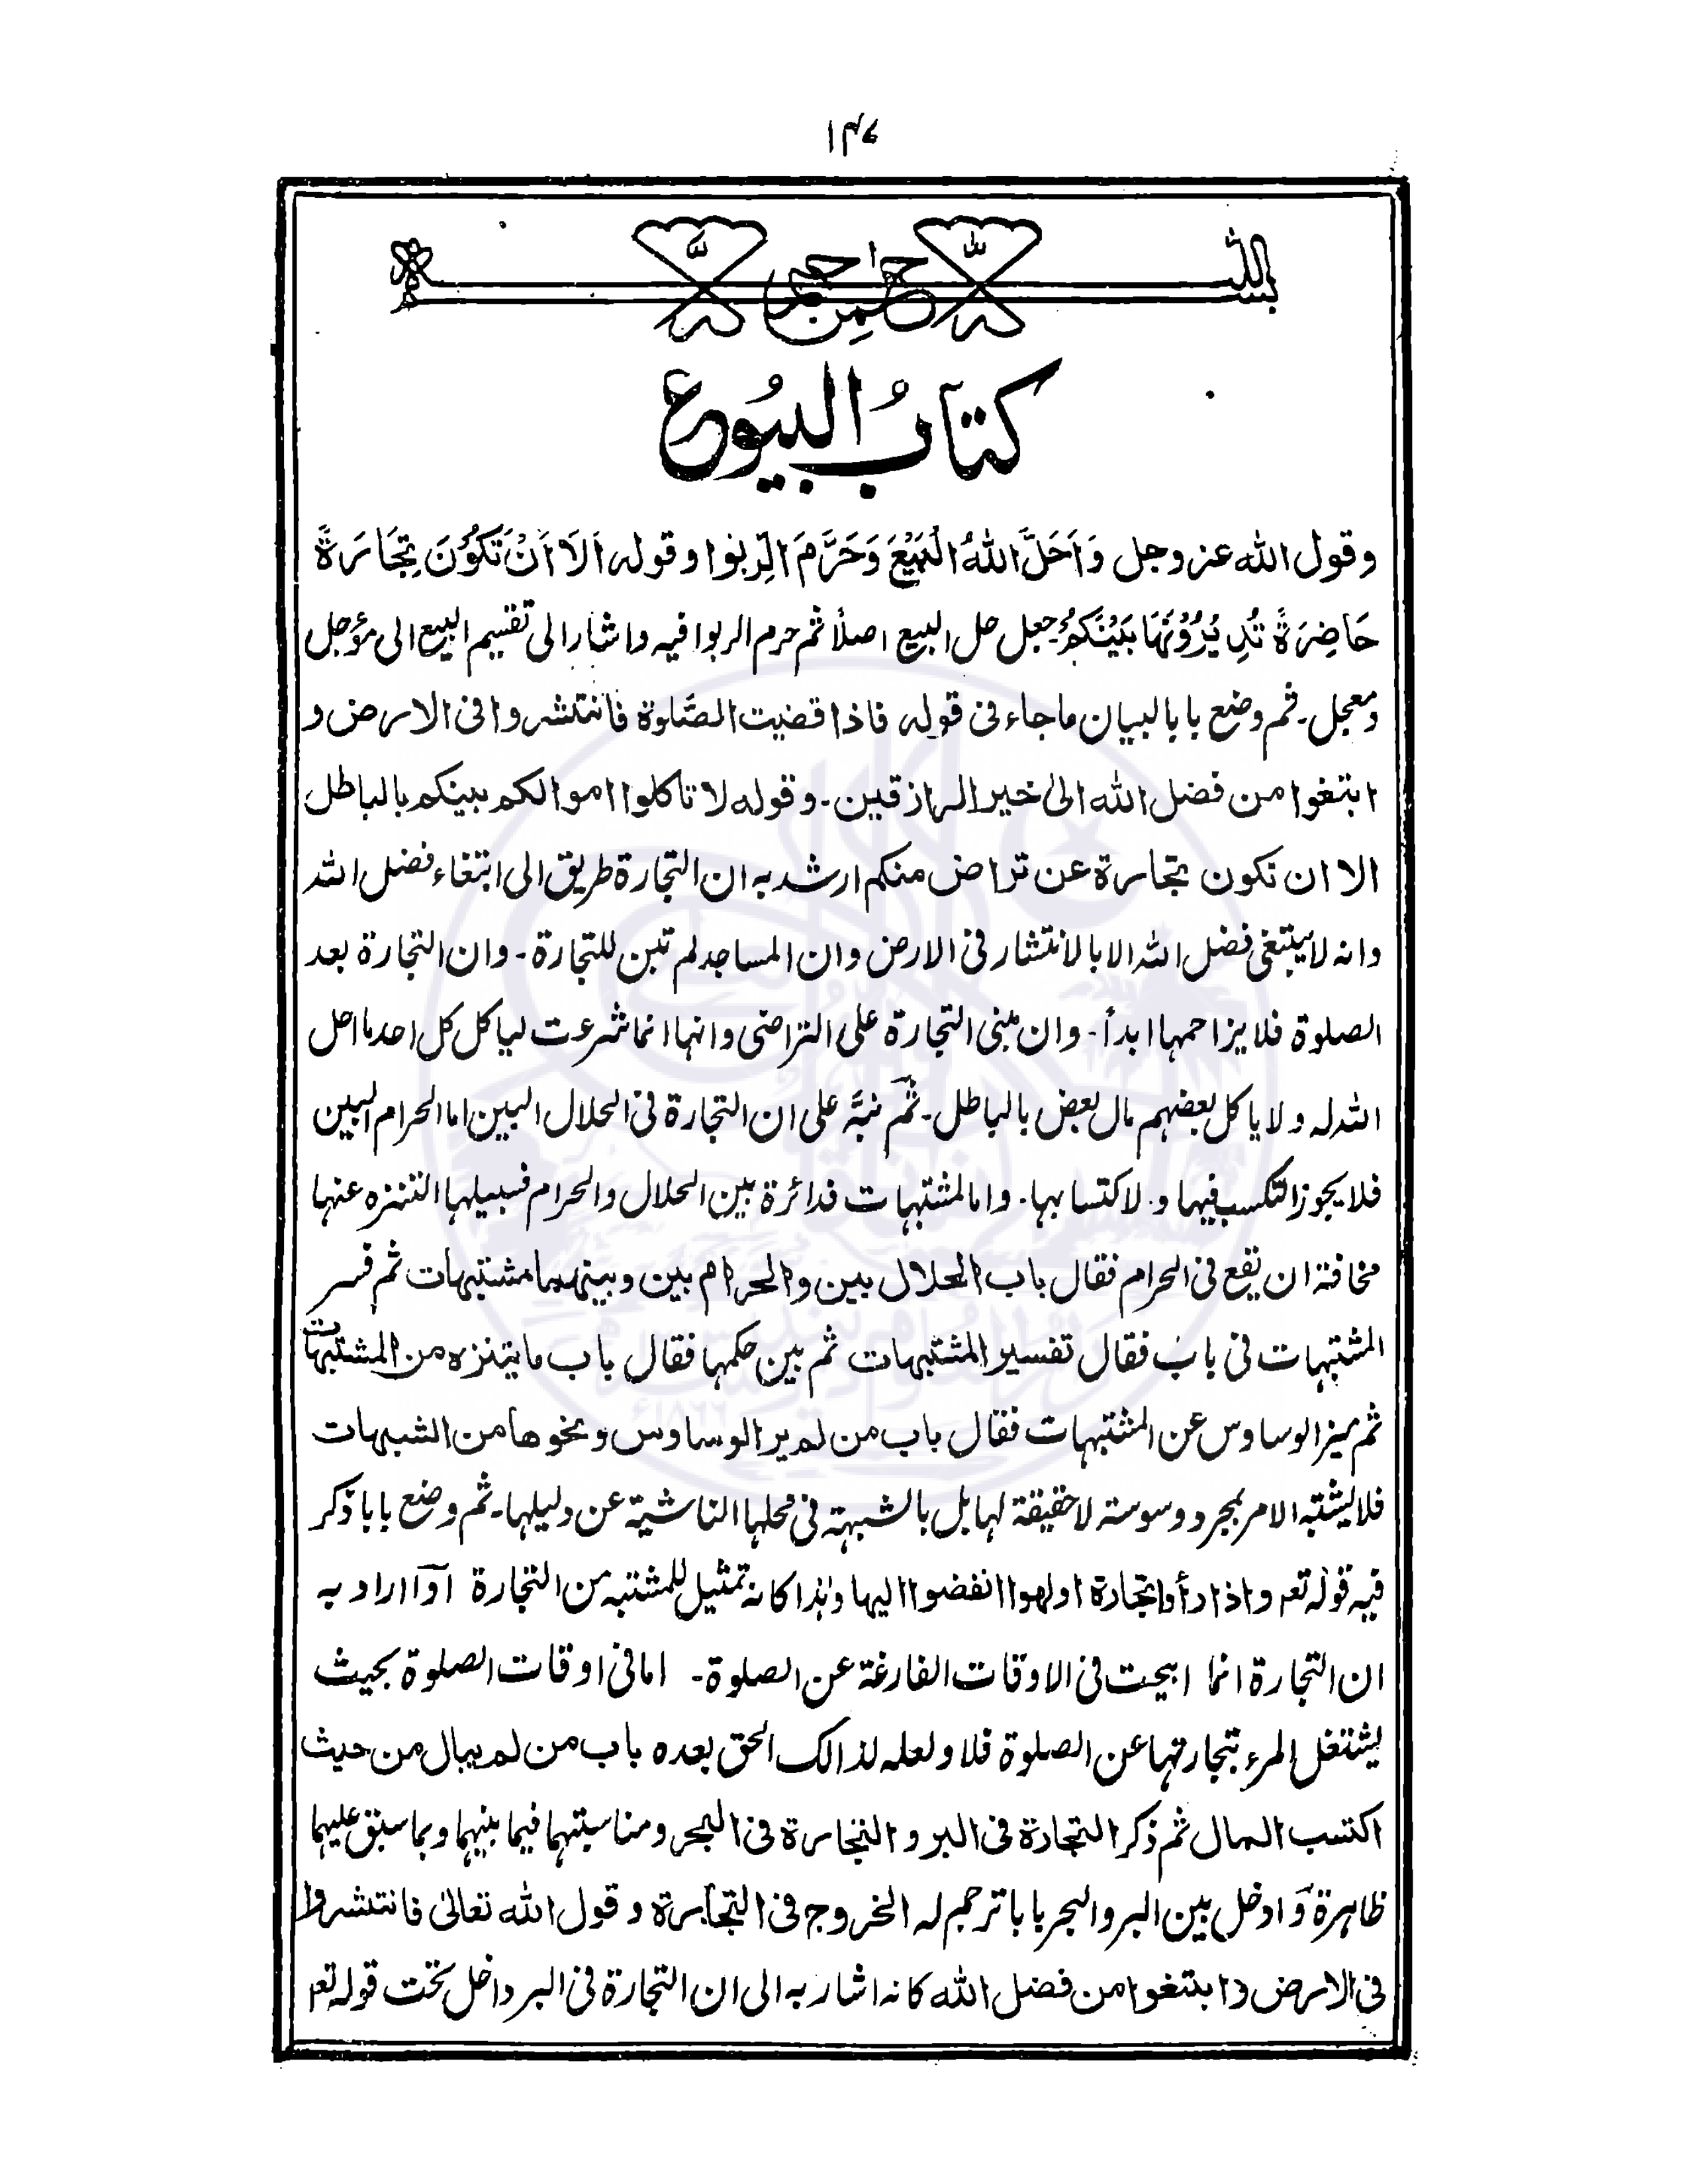 ۱۴۶
بسم الله الرحمن الرحيم
كتابُ البيُوع
وقول الله عز وجل وَاَحَلَّ اللهُ الْبَيْعَ وَحَرَّمَ الرِّبٰوا وقوله اَلَا اَنْ تَكُوْنَ تِجَارَةً
حَاضِرَةً تُدِيْرُوْنَهَا بَيْنَكُمْ۔ جعل حل البيع اصلاً ثم حرم الربوا فيه واشار الى تقسيم البيع الى مؤجل
ومعجل۔ ثم وضع بابا لبيان ما جاء فى قوله فاذا قضيت الصَّلوة فانتشروا فى الارض و
ابتغوا من فضل الله الىٰ خير الرازقين۔ وقوله لا تاكلوا اموالكم بينكم بالباطل
الا ان تكون تجارة عن تراض منكم ارشد به ان التجارة طريق الى ابتغاء فضل الله
وانه لا يبتغى فضل الله الا بالانتشار فى الارض وان المساجد لم تبن للتجارة۔ وان التجارة بعد
الصلوة فلا يزاحمها ابدأ۔ وان مبنى التجارة على التراضى وانها انما شرعت لياكل كل احد ما احل
الله له ولا ياكل بعضهم مال بعض بالباطل۔ ثم نبَّه على ان التجارة فى الحلال البين اما الحرام البين
فلا يجوز التكسب فيها و لاكتسا بها۔ واما المشتبهات فدائرة بين الحلال والحرام فسبيلها التنزه عنها
مخافة ان يقع فى الحرام فقال باب الحلال بين والحرام بين وبينهما مشتبهات ثم فسر
المشتبهات فى باب فقال تفسير المشتبهات ثم بين حكمها فقال باب ما يتنزه من المشتبهات
ثم ميز الوساوس عن المشتبهات فقال باب من لم ير الوساوس ونحوها من الشبهات
فلا يشتبه الامر بمجرد وسوسته لا حقيقة لها بل بالشبهته فى محلها الناشية عن دليلها۔ ثم وضع بابا ذكر
فيه قوله تعـ واذا رأوا تجارة او لهوا انفضوا اليها وهٰذا كانه تمثيل للمشتبه من التجارة اوآ اراد به
ان التجارة انما ابيحت فى الاوقات الفارغة عن الصلوة۔ اما فى اوقات الصلوة بحيث
يشتغل المرء بتجارتها عن الصلوة فلا ولعله لذالك الحق بعده باب من لم يبال من حيث
اكتسب المال ثم ذكر التجارة فى البر و التجارة فى البحر ومناسبتهما فيما بينهما وبما سبق عليهما
ظاهرة وادخل بين البر والبحر بابا ترجم له الخروج فى التجارة وقول الله تعالىٰ فانتشروا
فى الارض وابتغوا من فضل الله كانه اشار به الى ان التجارة فى البر داخل تحت قوله تعـ